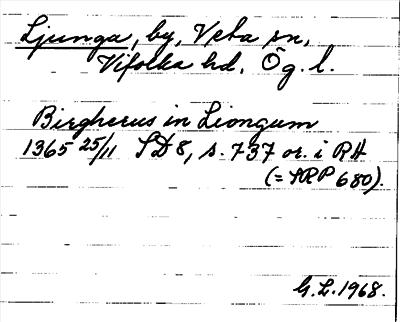 Ljunga, by, Veta sn,
Vifolka hd, Ög. l.
Birgherus in Liongum
1365 25/11 SD 8, s. 737 or. i RA
(= SRP 680).
G. L. 1968.